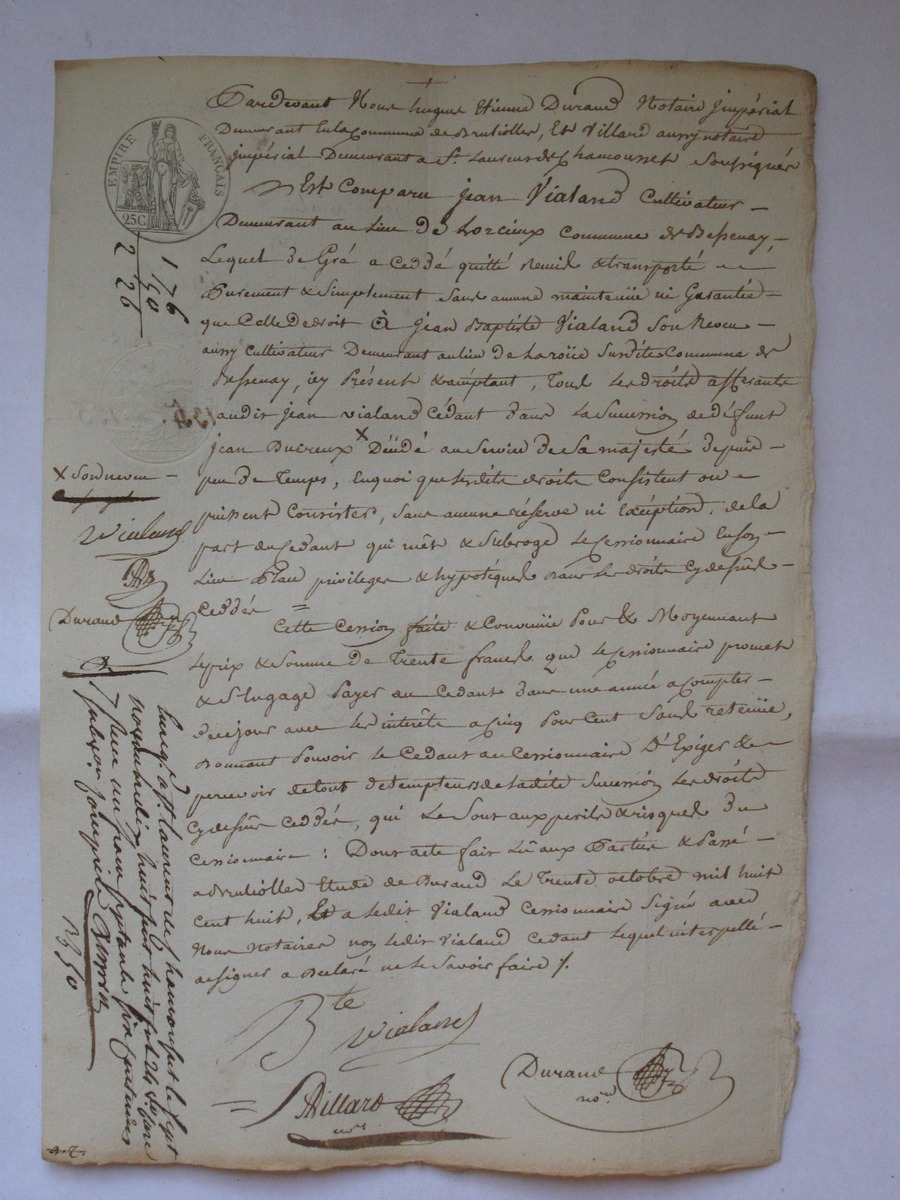 EMPIRE FRANÇAIS
25C
Pardevant Nous hugue Etienne Durand Notaire Jmpérial
Demeurant En la Commune de Brulioller, Et Villard aussy notaire
jmpérial Demeurant a St. Laurent de Chamousset soussignés
Est Comparu jean Vialand Cultivateur
Demeurant au Lieu De Lorcieux Commune de Bessenay,
Lequel de Gré a Ceddé quitté Remis & transporté
Purement & Simplement sans aucune maintenüe ni Garantie
que Celle de droit à jean Baptiste Vialand Son Neveu
aussy Cultivateur Demeurant au lieu de Laroüe Susdite Commune de
Bessenay, icy Présent & acceptant, Tous Les droits afferants
audit jean vialand Cédant dans La Succession de défunt
jean Ducreux x Déédé au Service de Sa majesté depuis
peu de Temps, En quoi que lesdits droits Consistent ou
puissent Consister, sans aucune réserve ni Exception, de la
part du Cedant qui mèt & Subroge Le Cessionnaire En son
Lieu Place privileges & hypotéques dans Les droits Cy dessus
Ceddés
Cette Cession faite & Convenüe Pour & Moyennant
Le prix & Somme de Trente francs que Le Cessionnaire promet
& S'Engage Payer au Cedant dans une année a Compter
De ce jour avec Les interêts a Cinq Pour Cent Sans retenüe,
Donnant Pouvoir Le Cedant au Cessionnaire D'Exiger &
percevoir de tout detempteurs de Ladite Succession Les droits
Cy dessus Ceddés, qui Le Sont aux perils & risques du
Cessionnaire : Dont acte fait Lû aux Parties & Passé
a Brulliolles Etude de Durand Le Trente octobre mil huit
Cent huit, Et a Ledit Vialand Cessionnaire Signé avec
Nous Notaires noy Ledit Vialand Cedant Lequel interpellé
de signer a Declaré ne Le Savoir faire /.
Bte Vialand
Villard
nore
Durand
nore
1 76
50
2 26
x Son neveu
Vialand
Durand
Enregé. a St. Laurent de Chamousset le sept
novembre dix huit cent huit fol 24
Reçu un franc
1f 50